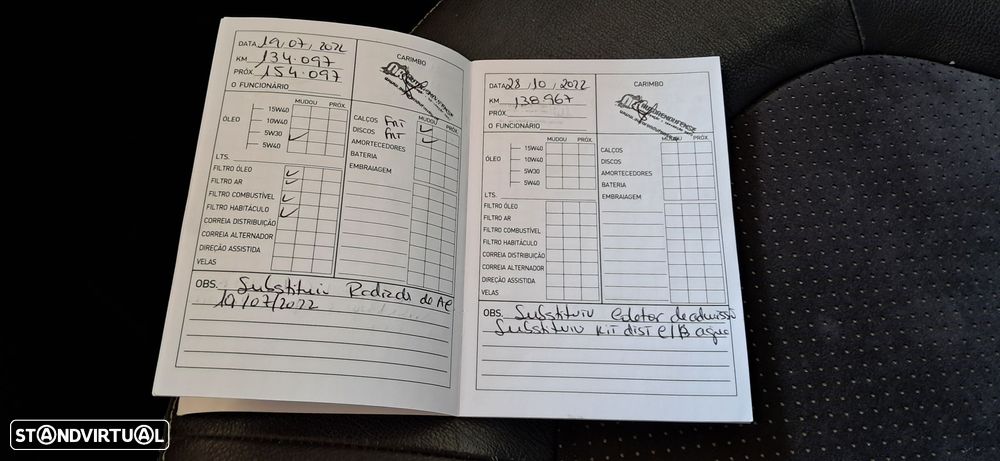 DATA 19, 07, 2022
KM 134.097
PRÓX. 154.097
O FUNCIONÁRIO
CARIMBO
MUDOU PRÓX.
ÓLEO
15W40
10W40
5W30
5W40
LTS.
FILTRO ÓLEO
FILTRO AR
FILTRO COMBUSTÍVEL
FILTRO HABITÁCULO
CORREIA DISTRIBUIÇÃO
CORREIA ALTERNADOR
DIREÇÃO ASSISTIDA
VELAS
MUDOU PRÓX.
CALÇOS FRT
DISCOS FRT
AMORTECEDORES
BATERIA
EMBRAIAGEM
OBS. Substituiu do AC
19/07/2022
DATA 28, 10, 2022
KM 138967
PRÓX.
O FUNCIONÁRIO
CARIMBO
MUDOU PRÓX.
ÓLEO
15W40
10W40
5W30
5W40
LTS.
FILTRO ÓLEO
FILTRO AR
FILTRO COMBUSTÍVEL
FILTRO HABITÁCULO
CORREIA DISTRIBUIÇÃO
CORREIA ALTERNADOR
DIREÇÃO ASSISTIDA
VELAS
CALÇOS
DISCOS
AMORTECEDORES
BATERIA
EMBRAIAGEM
OBS. Substituiu coletor de admissão
Substituiu Kit dist c/B agua
STANDVIRTUAL